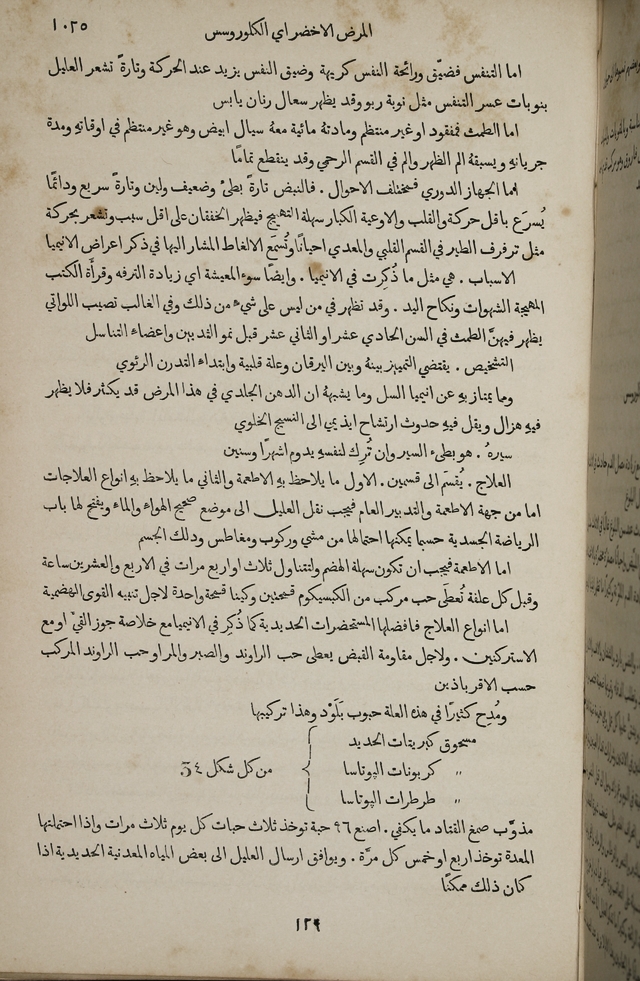 المرض الاخضر اي الكلوروسس
١٠٢٥
اما التنفس فضيّق ورائحة النفس كريهة وضيق النفس يزيد عند الحركة وتارةً تشعر العليل
بنوبات عسر التنفس مثل نوبة ربو وقد يظهر سعال رنان يابس
اما الطمث فمفقود او غير منتظم ومادتهُ مائية معهُ سيال ابيض وهو غير منتظم في اوقاته ومدة
جريانهِ ويسبقهُ الم الظهر والم في القسم الرحمي وقد ينقطع تمامًا
اما الجهاز الدوري فمختلف الاحوال . فالنبض تارةً بطيءٌ وضعيف ولين وتارةً سريع ودائمًا
يُسرَع باقل حركة والقلب والاوعية الكبار سهلة التهيج فيظهر الخفقان على اقل سبب وتشعر بحركة
مثل ترفرف الطير في القسم القلبي والمعدي احيانًا وتُسمَع الالغاط المشار اليها في ذكر اعراض الانيميا
الاسباب . هي مثل ما ذُكِرت في الانيميا . وايضًا سوء المعيشة اي زيادة الترفه وقرأَة الكتب
المهيجة الشهوات ونكاح اليد . وقد تظهر في من ليس على شيءٍ من ذلك وفي الغالب تصيب اللواتي
يظهر فيهنَّ الطمث في السن الحادي عشر او الثاني عشر قبل نمو الثديين واعضاء التناسل
التشخيص . يقتضي التمييز بينهُ وبين اليرقان وعلة قلبية وابتداء التدرن الرئوي
ومما يمتاز بهِ عن انيميا السل وما يشبههُ ان الدهن الجلدي في هذا المرض قد يكثر فلا يظهر
فيهِ هزال ويقل فيهِ حدوث ارتشاح ايذيمي الى النسيج الخلوي
سيرهُ . هو بطيء السير وان تُرِك لنفسهِ يدوم اشهرًا وسنين
العلاج . يُقسَم الى قسمين . الاول ما يلاحظ بهِ الاطعمة والثاني ما يلاحظ بهِ انواع العلاجات
اما من جهة الاطعمة والتدبير العام فيجب نقل العليل الى موضع صحيح الهواء والماء ويفتح لها باب
الرياضة الجسدية حسبما يمكنها احتمالها من مشي وركوب ومغاطس ودلك الجسم
اما الاطعمة فيجب ان تكون سهلة الهضم ولتتناول ثلاث او اربع مرات في الاربع والعشرين ساعة
وقبل كل علفة تُعطَى حب مركب من الكبسيكوم قمحتين وكينا قمحة واحدة لاجل تنبيه القوى الهضمية
اما انواع العلاج فافضلها المستحضرات الحديدية كما ذُكِر في الانيميا مع خلاصة جوز القيء او مع
الاستركنين . ولاجل مقاومة القبض يعطى حب الراوند والصبر والمر او حب الراوند المركب
حسب الاقرباذين
ومُدِح كثيرًا في هذه العلة حبوب بَلَوْد وهذا تركيبها
مسحوق كبريتات الحديد
〃 كربونات الپوتاسا
من كل شكل ٤
〃 طرطرات الپوتاسا
مذوَّب صمغ القتاد ما يكفي . اصنع ٩٦ حبة توخذ ثلاث حبات كل يوم ثلاث مرات واذا احتملتها
المعدة توخذ اربع او خمس كل مرَّة . ويوافق ارسال العليل الى بعض المياه المعدنية الحديدية اذا
كان ذلك ممكنًا
١٢٩